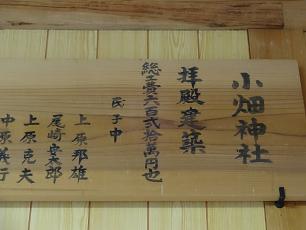 小畑神社
拝殿建築
総工費六百弐拾萬円也
氏子中
上原那雄
尾崎安太郎
上原克夫
中原義行